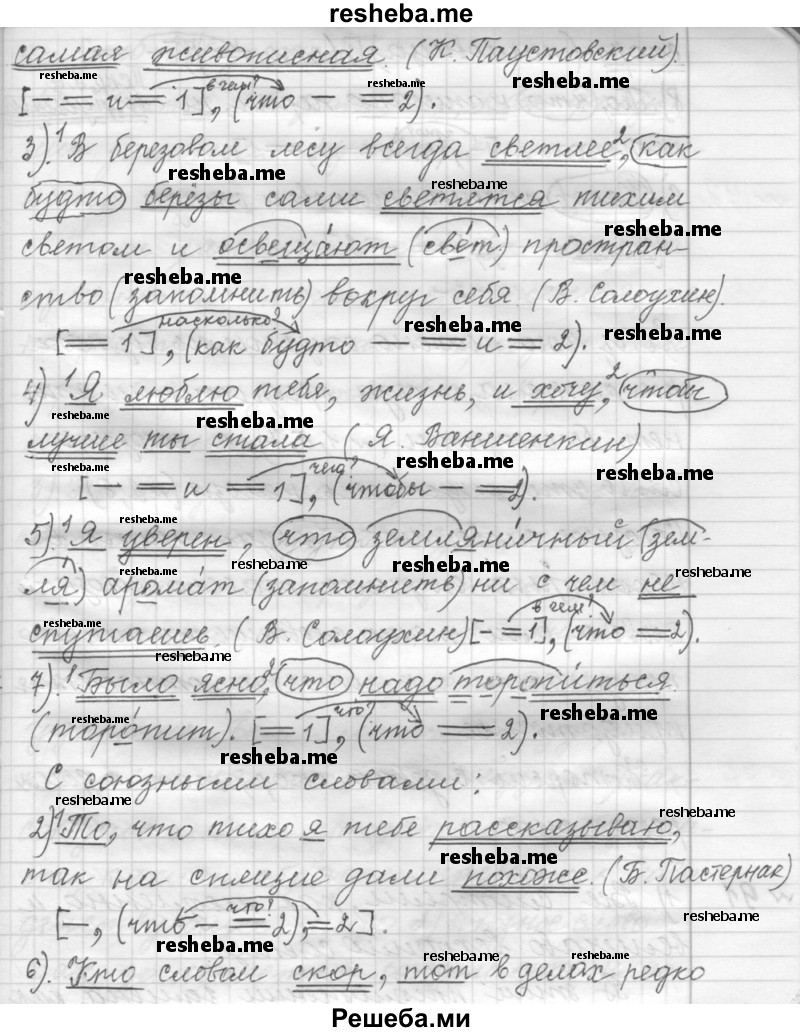 resheba.me
самая живописная. (К. Паустовский).
resheba.me resheba.me resheba.me
в чем?
[— = и = 1], (что — = 2).
3). ¹В березовом лесу всегда светлее,² как
resheba.me resheba.me
будто березы сами светятся тихим
resheba.me
светом и освещáют (свéт) простран-
resheba.me
ство (запомнить) вокруг себя (В. Солоухин).
resheba.me насколько? resheba.me resheba.me
[= 1], (как будто — = и = 2).
4) ¹Я люблю тебя, жизнь, и хочу,² чтобы
resheba.me resheba.me
лучше ты стала (Я. Ваншенкин)
resheba.me чего? resheba.me resheba.me
[— = и = 1], (чтобы — = 2).
resheba.me
5). ¹Я уверен, что земляничный (зем-
resheba.me resheba.me
ля) аромáт (запомнить) ни с чем не
resheba.me в чем?
спутаешь. (В. Солоухин) [— = 1], (что = 2).
resheba.me
7). ¹Было ясно,² что надо торопи́ться
resheba.me что? resheba.me
(торóпит). [= 1], (что = 2).
resheba.me
С союзными словами:
resheba.me resheba.me
2) ¹То, что тихо я тебе рассказываю,
resheba.me
так на спящие дали похоже. (Б. Пастернак)
что? resheba.me
[—, (что — = 2), = 2].
resheba.me resheba.me
6). Кто словом скор, тот в делах редко
resheba.me resheba.me
Решеба.ми